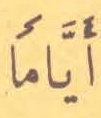 أَيَّامًا